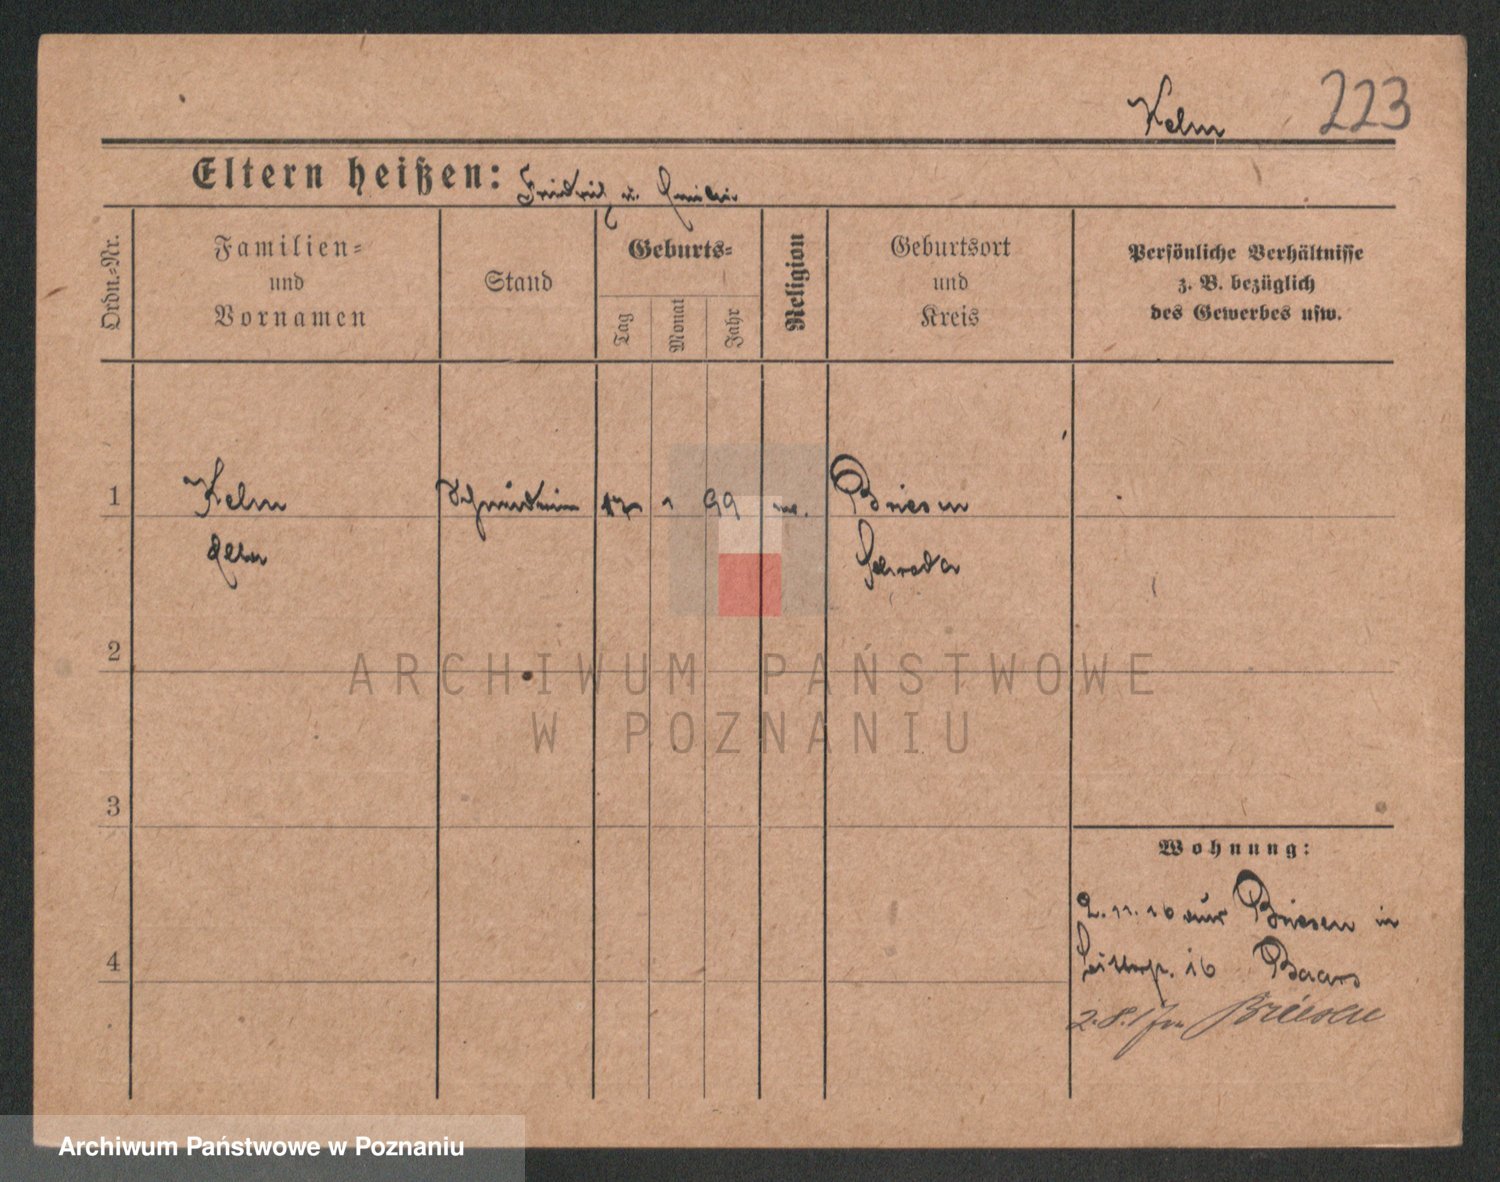 Kelm 223
Eltern heißen: Friedrich u. Emilie
Ordn.-Nr.
Familien-
und
Vornamen
Stand
Geburts-
Tag
Monat
Jahr
Religion
Geburtsort
und
Kreis
Persönliche Verhältnisse
z. B. bezüglich
des Gewerbes usw.
1 Kelm 17 1 99 Briesen
Schroda
2
ARCHIWUM PAŃSTWOWE
W POZNANIU
3
Wohnung:
2. 11. 16 aus Briesen in
16 Baars
4
2.8.17 Briesen
Archiwum Państwowe w Poznaniu